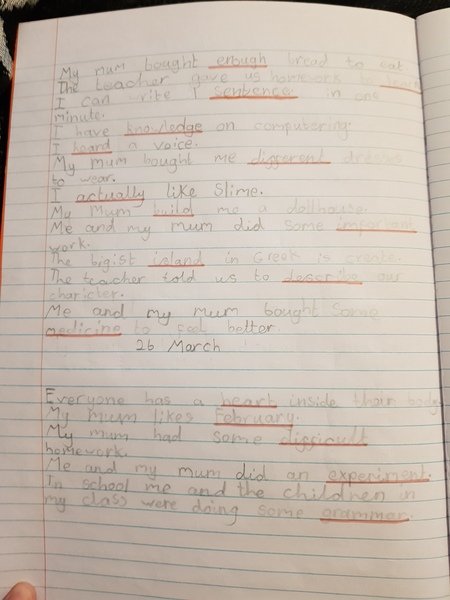 My mum bought enough bread to eat
The teacher gave us homework to learn
I can write 1 sentence in one
minute.
I have knowledge on computering.
I heard a voice.
My mum bought me different dresses
to wear.
I actually like Slime.
My Mum build me a dollhouse.
Me and my mum did some important
work.
The bigist island in Greek is create.
The teacher told us to describe our
charicter.
Me and my mum bought Some
medicine to feel better.
26 March
Everyone has a heart inside their body
My mum likes February.
My mum had some difficult
homework.
Me and my mum did an experiment.
In school me and the children in
my class were doing some grammar.